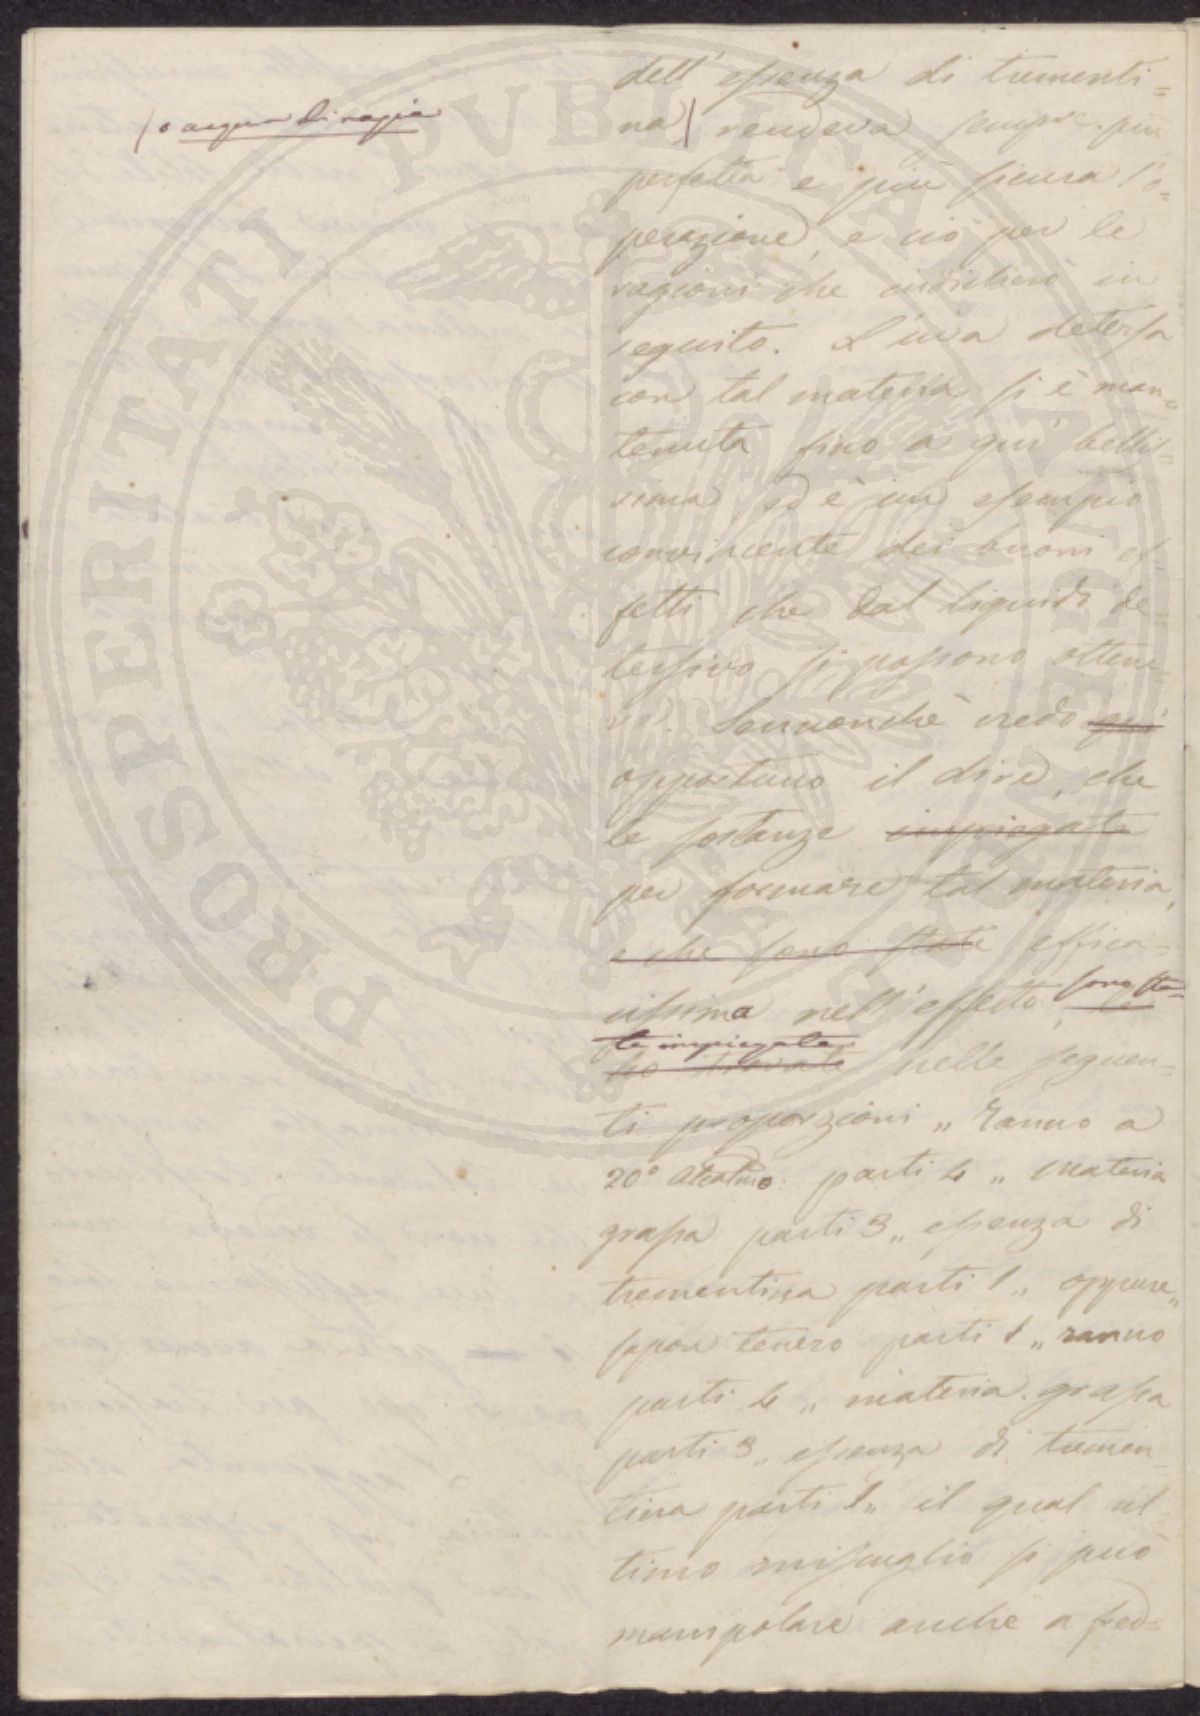 / o acqua di ragia
dell'essenza di trementi=
na/ rendeva sempre più
perfetta e più sicura l'o=
perazione, e ciò per le
ragioni che indicherò in
seguito. L'uva detersa
con tal materia si è man=
tenuta fino a qui bellis=
sima, ed è un esempio
convincente dei buoni ef=
fetti che dal liquido de=
tersivo si possono ottene=
re. Sennonchè credo qui
opportuno il dire, che
le sostanze impiegate
per formare tal materia,
e che sono state effica=
cissima nell'effetto, sono sta=
te impiegate
ho trovate nelle seguen=
ti proporzioni „ Ranno a
20° alcalino parti 4 „ materia
grassa parti 3 „ essenza di
trementina parti 1 „ oppure „
sapon tenero parti 1 „ ranno
parti 4 „ materia grassa
parti 3 „ essenza di tremen=
tina parti 1 „ il qual ul=
timo miscuglio si può
manipolare anche a fred=
PROSPERITATI PVBLICAE AVGENDAE